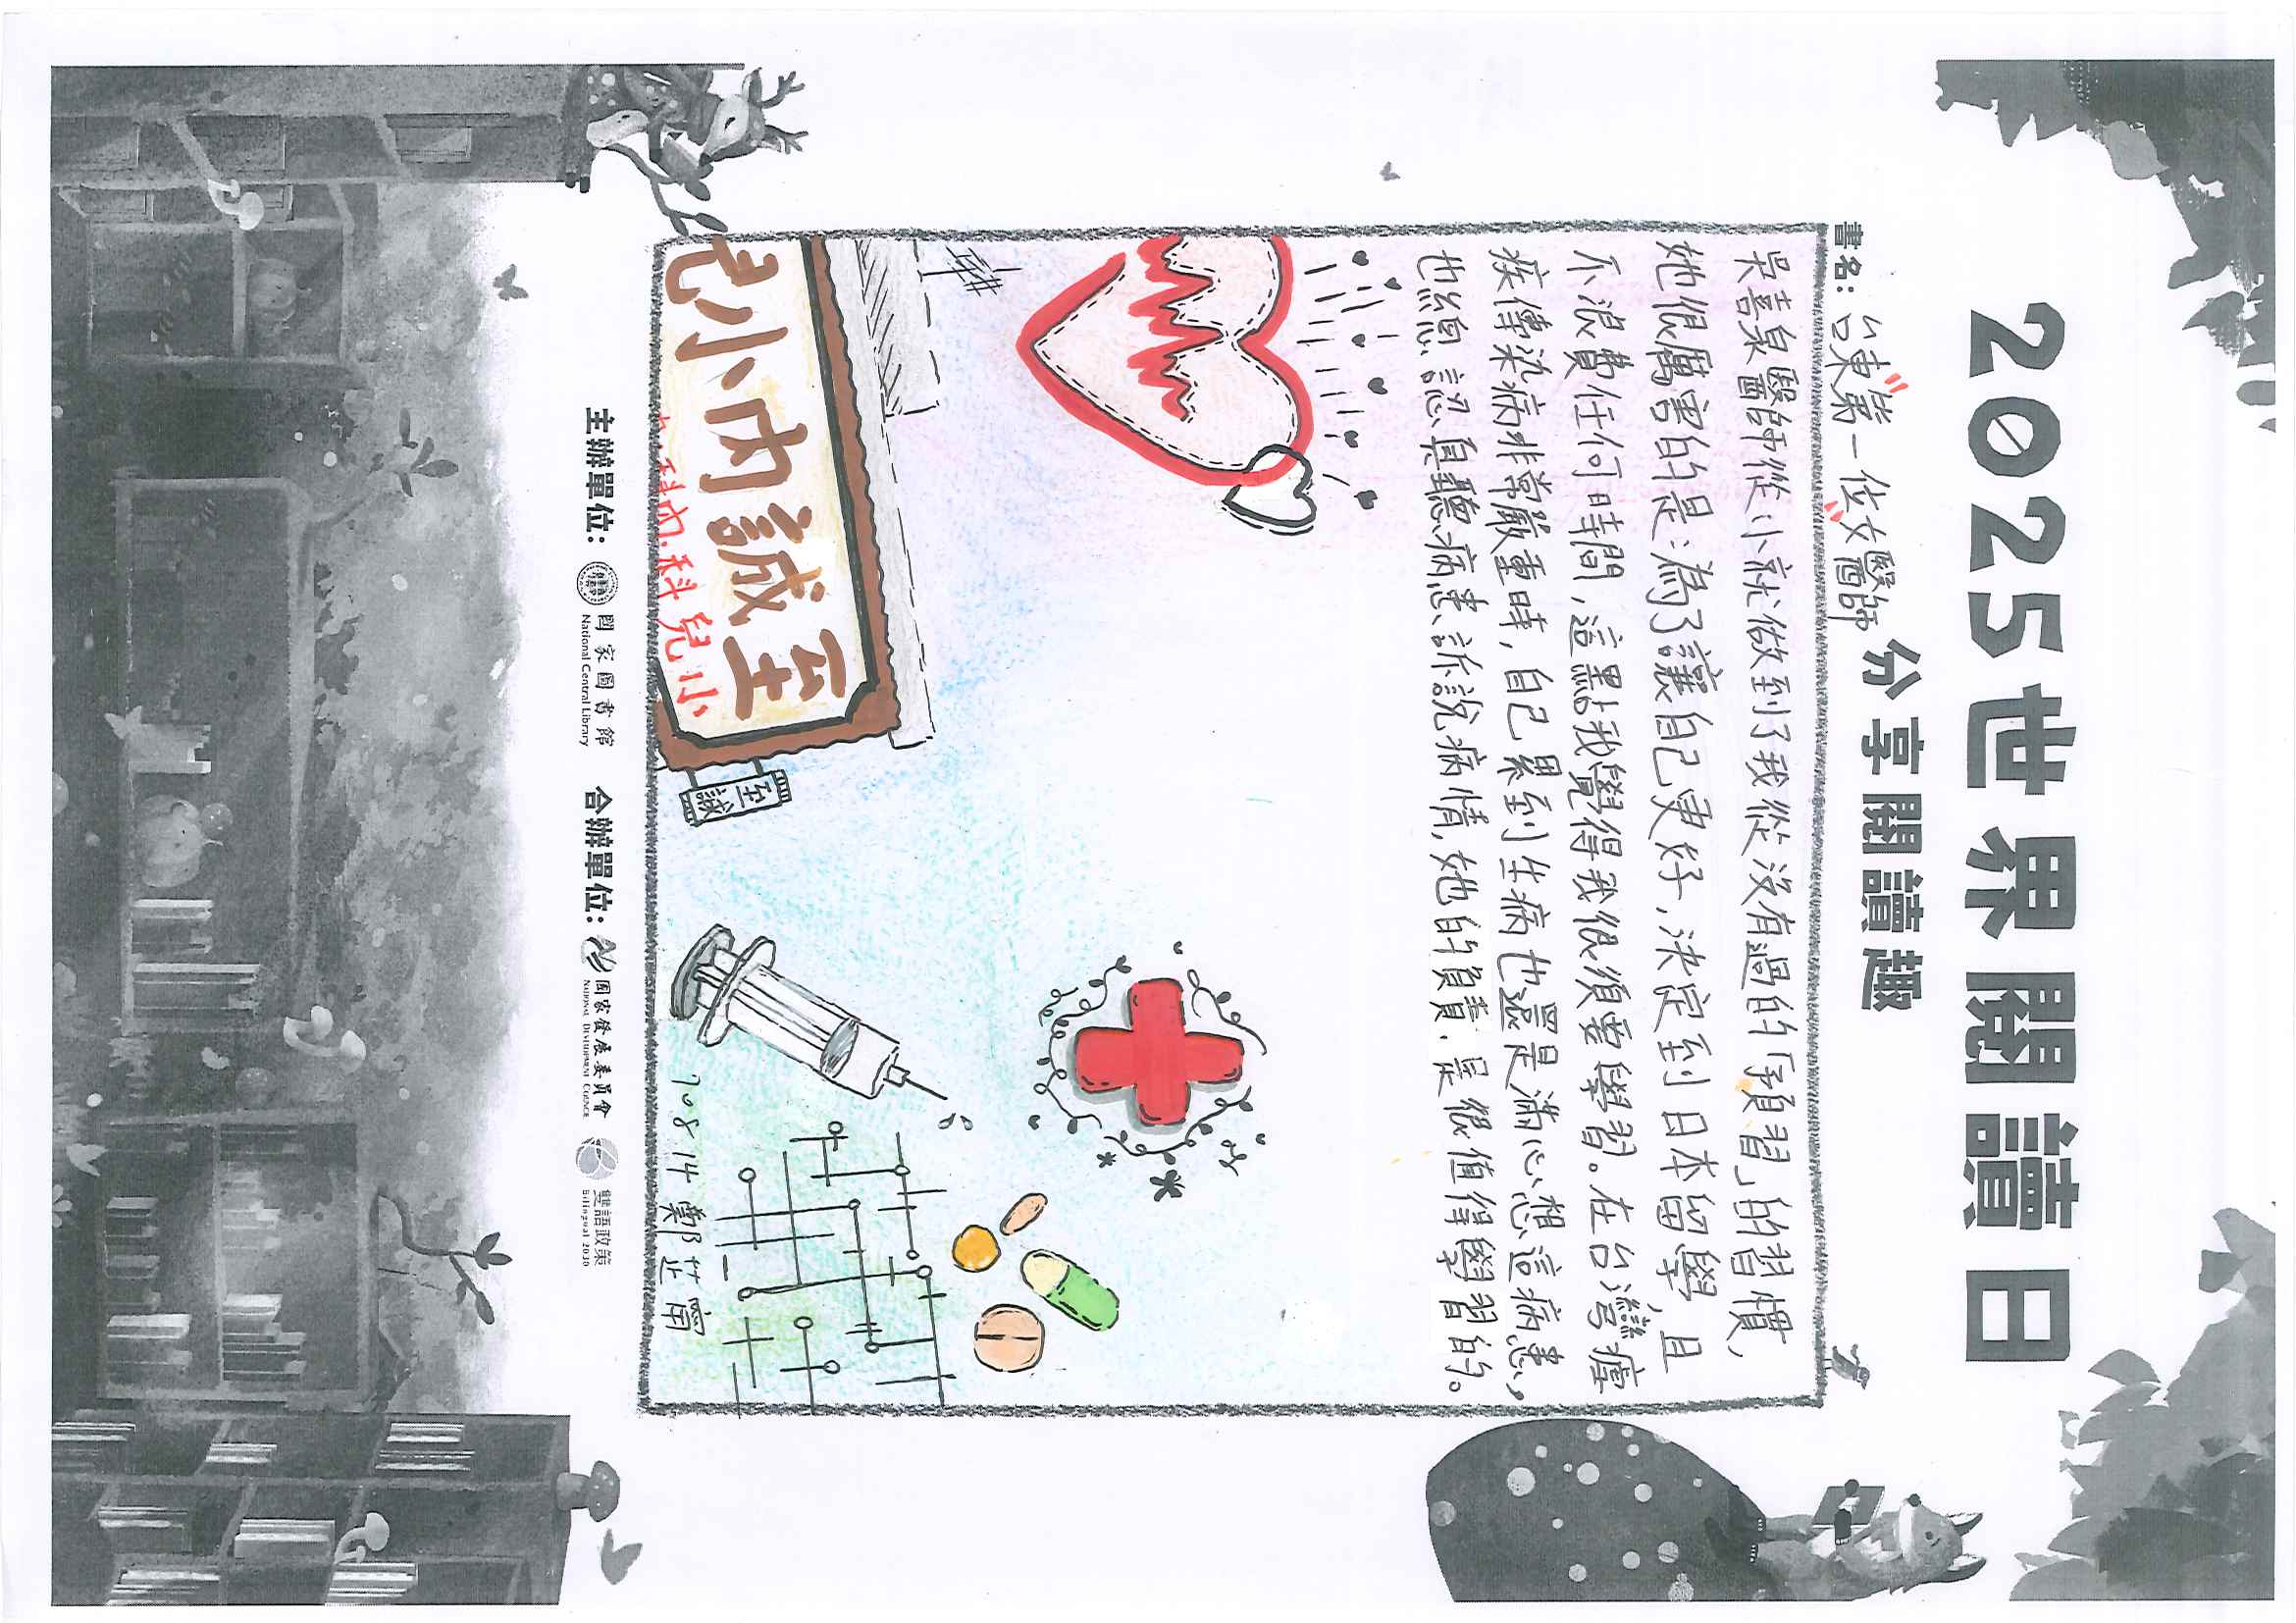 2025世界閱讀日
分享閱讀趣
書名：台東第一位女醫師
吳喜泉醫師從小就做到了我從沒有過的「預習」的習慣，
她很厲害的是為了讓自己更好，決定到日本留學，且
不浪費任何時間，這點我覺得我很須要學習。在台灣瘧
疾傳染病非常嚴重時，自己累到生病也還是滿心想這病患，
也總認真聽病患訴說病情，她的負責，是很值得學習的。
至誠內小
小兒科.內科
至誠
70814 鄭芷甯
主辦單位：國家圖書館 National Central Library
合辦單位：國家發展委員會 National Development Council
雙語政策 Bilingual 2030